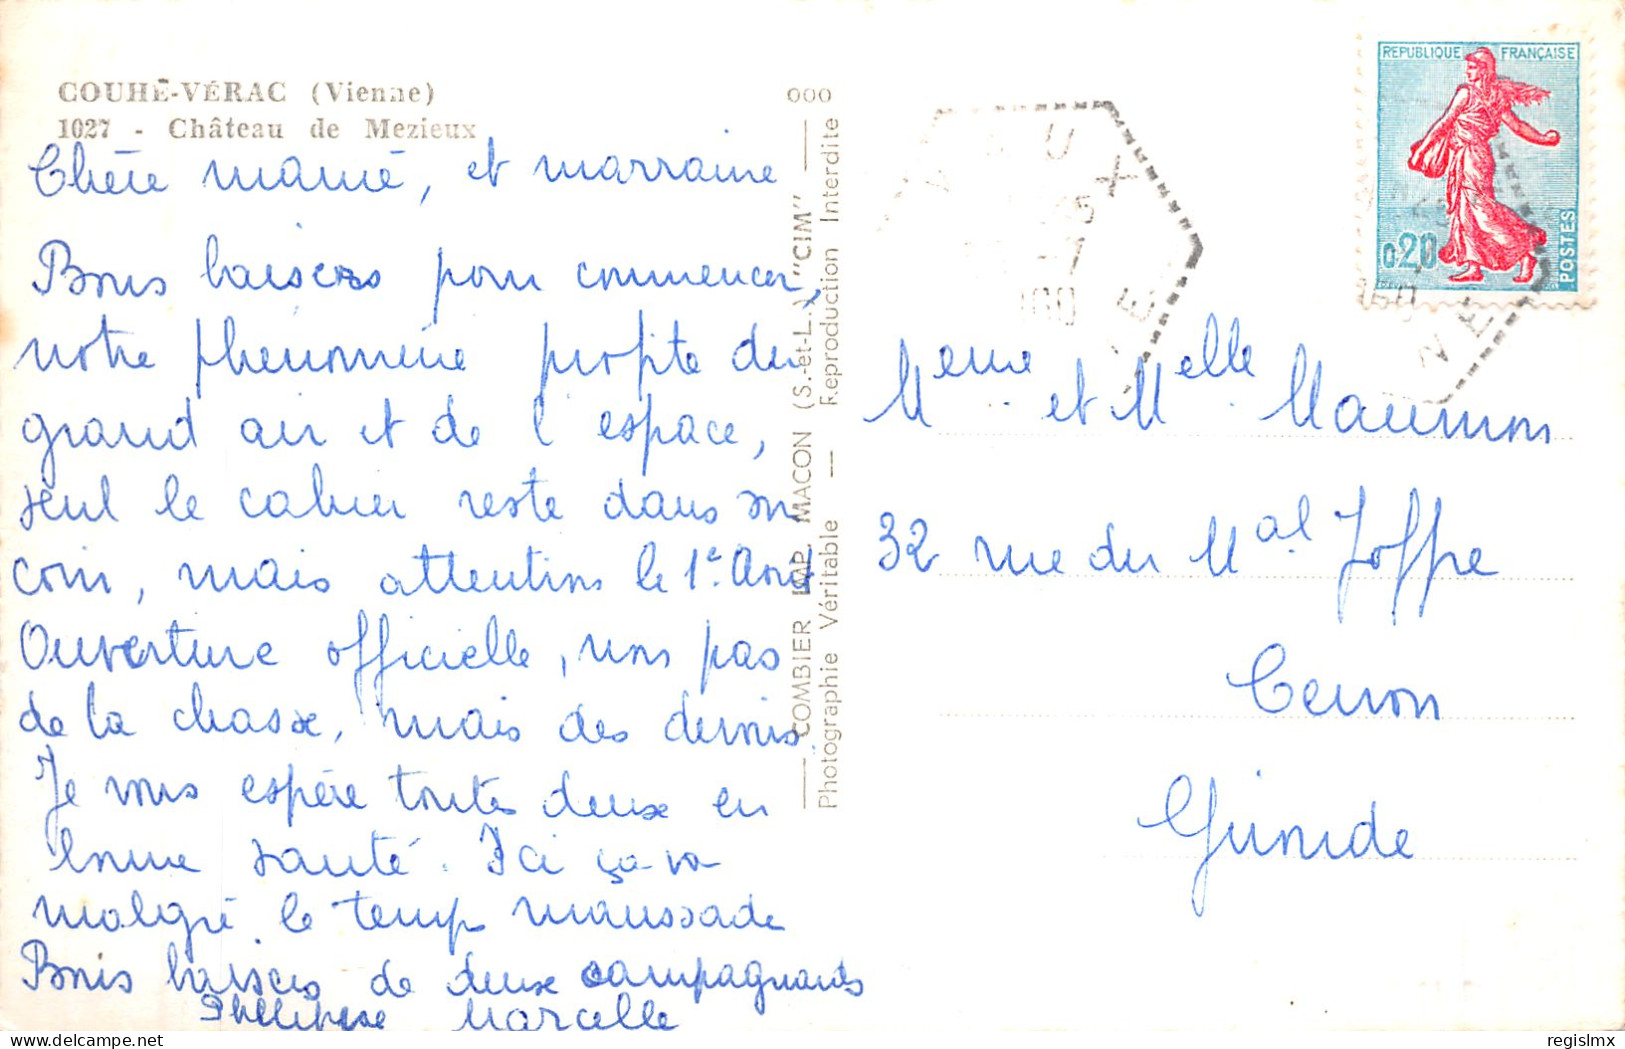 COUHÉ-VÉRAC (Vienne)
1027 - Château de Mezieux
Chère mamie, et marraine
Bons baisers pour commencer,
notre phénomène profite du
grand air et de l'espace,
seul le cahier reste dans son
coin, mais attentions le 1e. Aout
Ouverture officielle, non pas
de la chasse, mais des devoirs.
Je vous espère toutes deux en
bonne santé. Ici ça va
malgré le temps maussade
Bons baisers de deux campagnards
Marcelle
000
COMBIER IMP. MACON (S.-et-L.) "CIM"
Photographie Véritable — Reproduction Interdite
REPUBLIQUE FRANÇAISE
0,20
POSTES
Meme et Melle Maumon
32 rue du Mal Joffre
Cenon
Gironde
regislmx